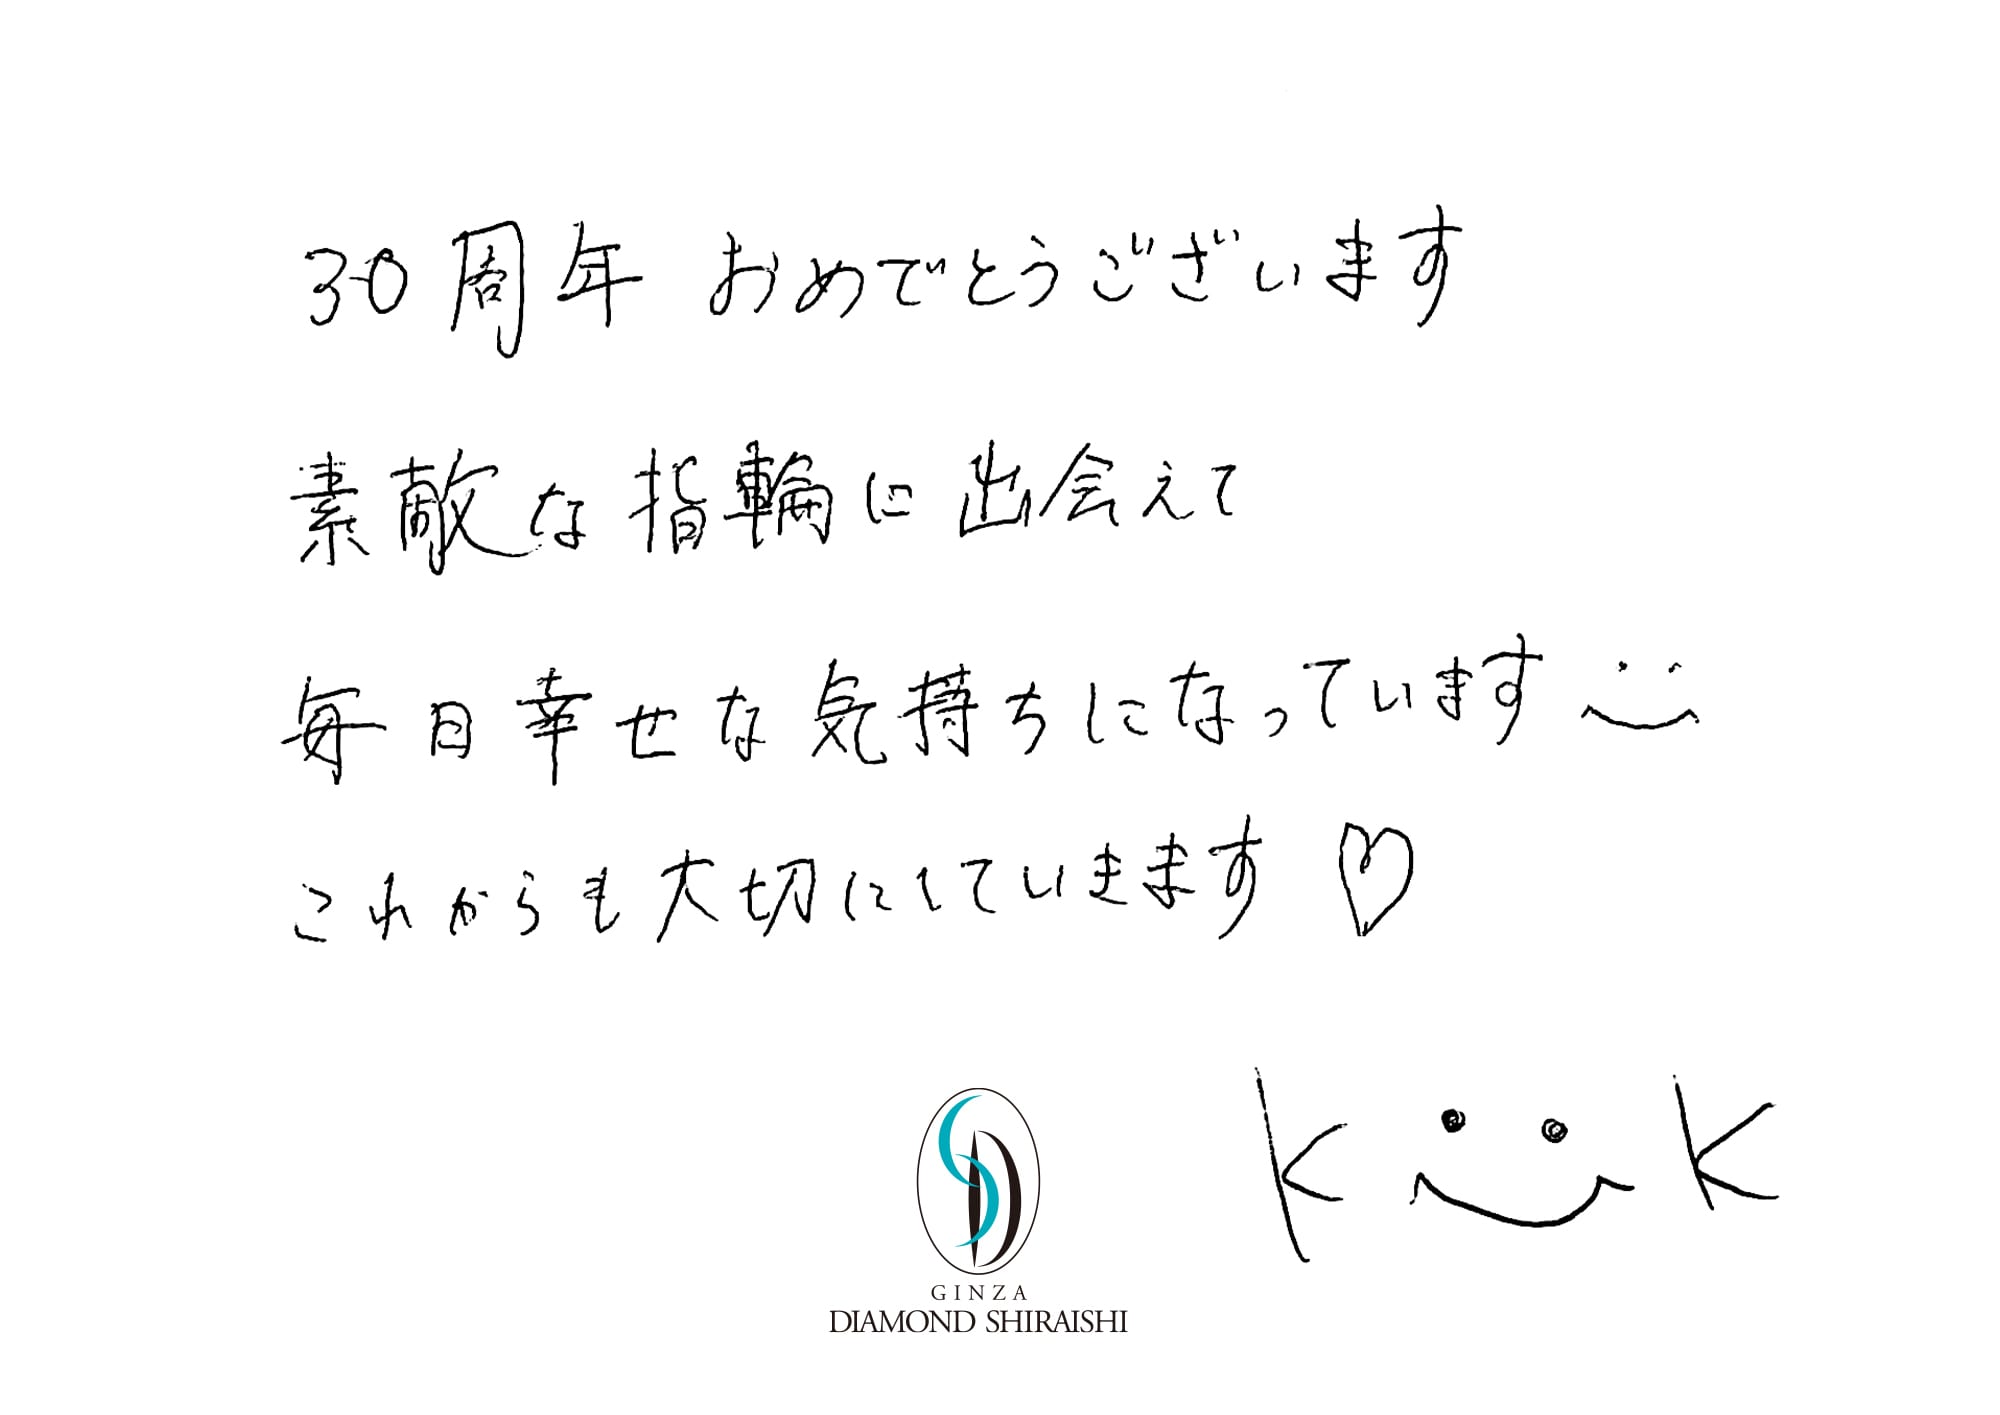 30周年 おめでとうございます
素敵な指輪に出会えて
毎日幸せな気持ちになっています
これからも大切にしていきます♡
K K
GINZA
DIAMOND SHIRAISHI